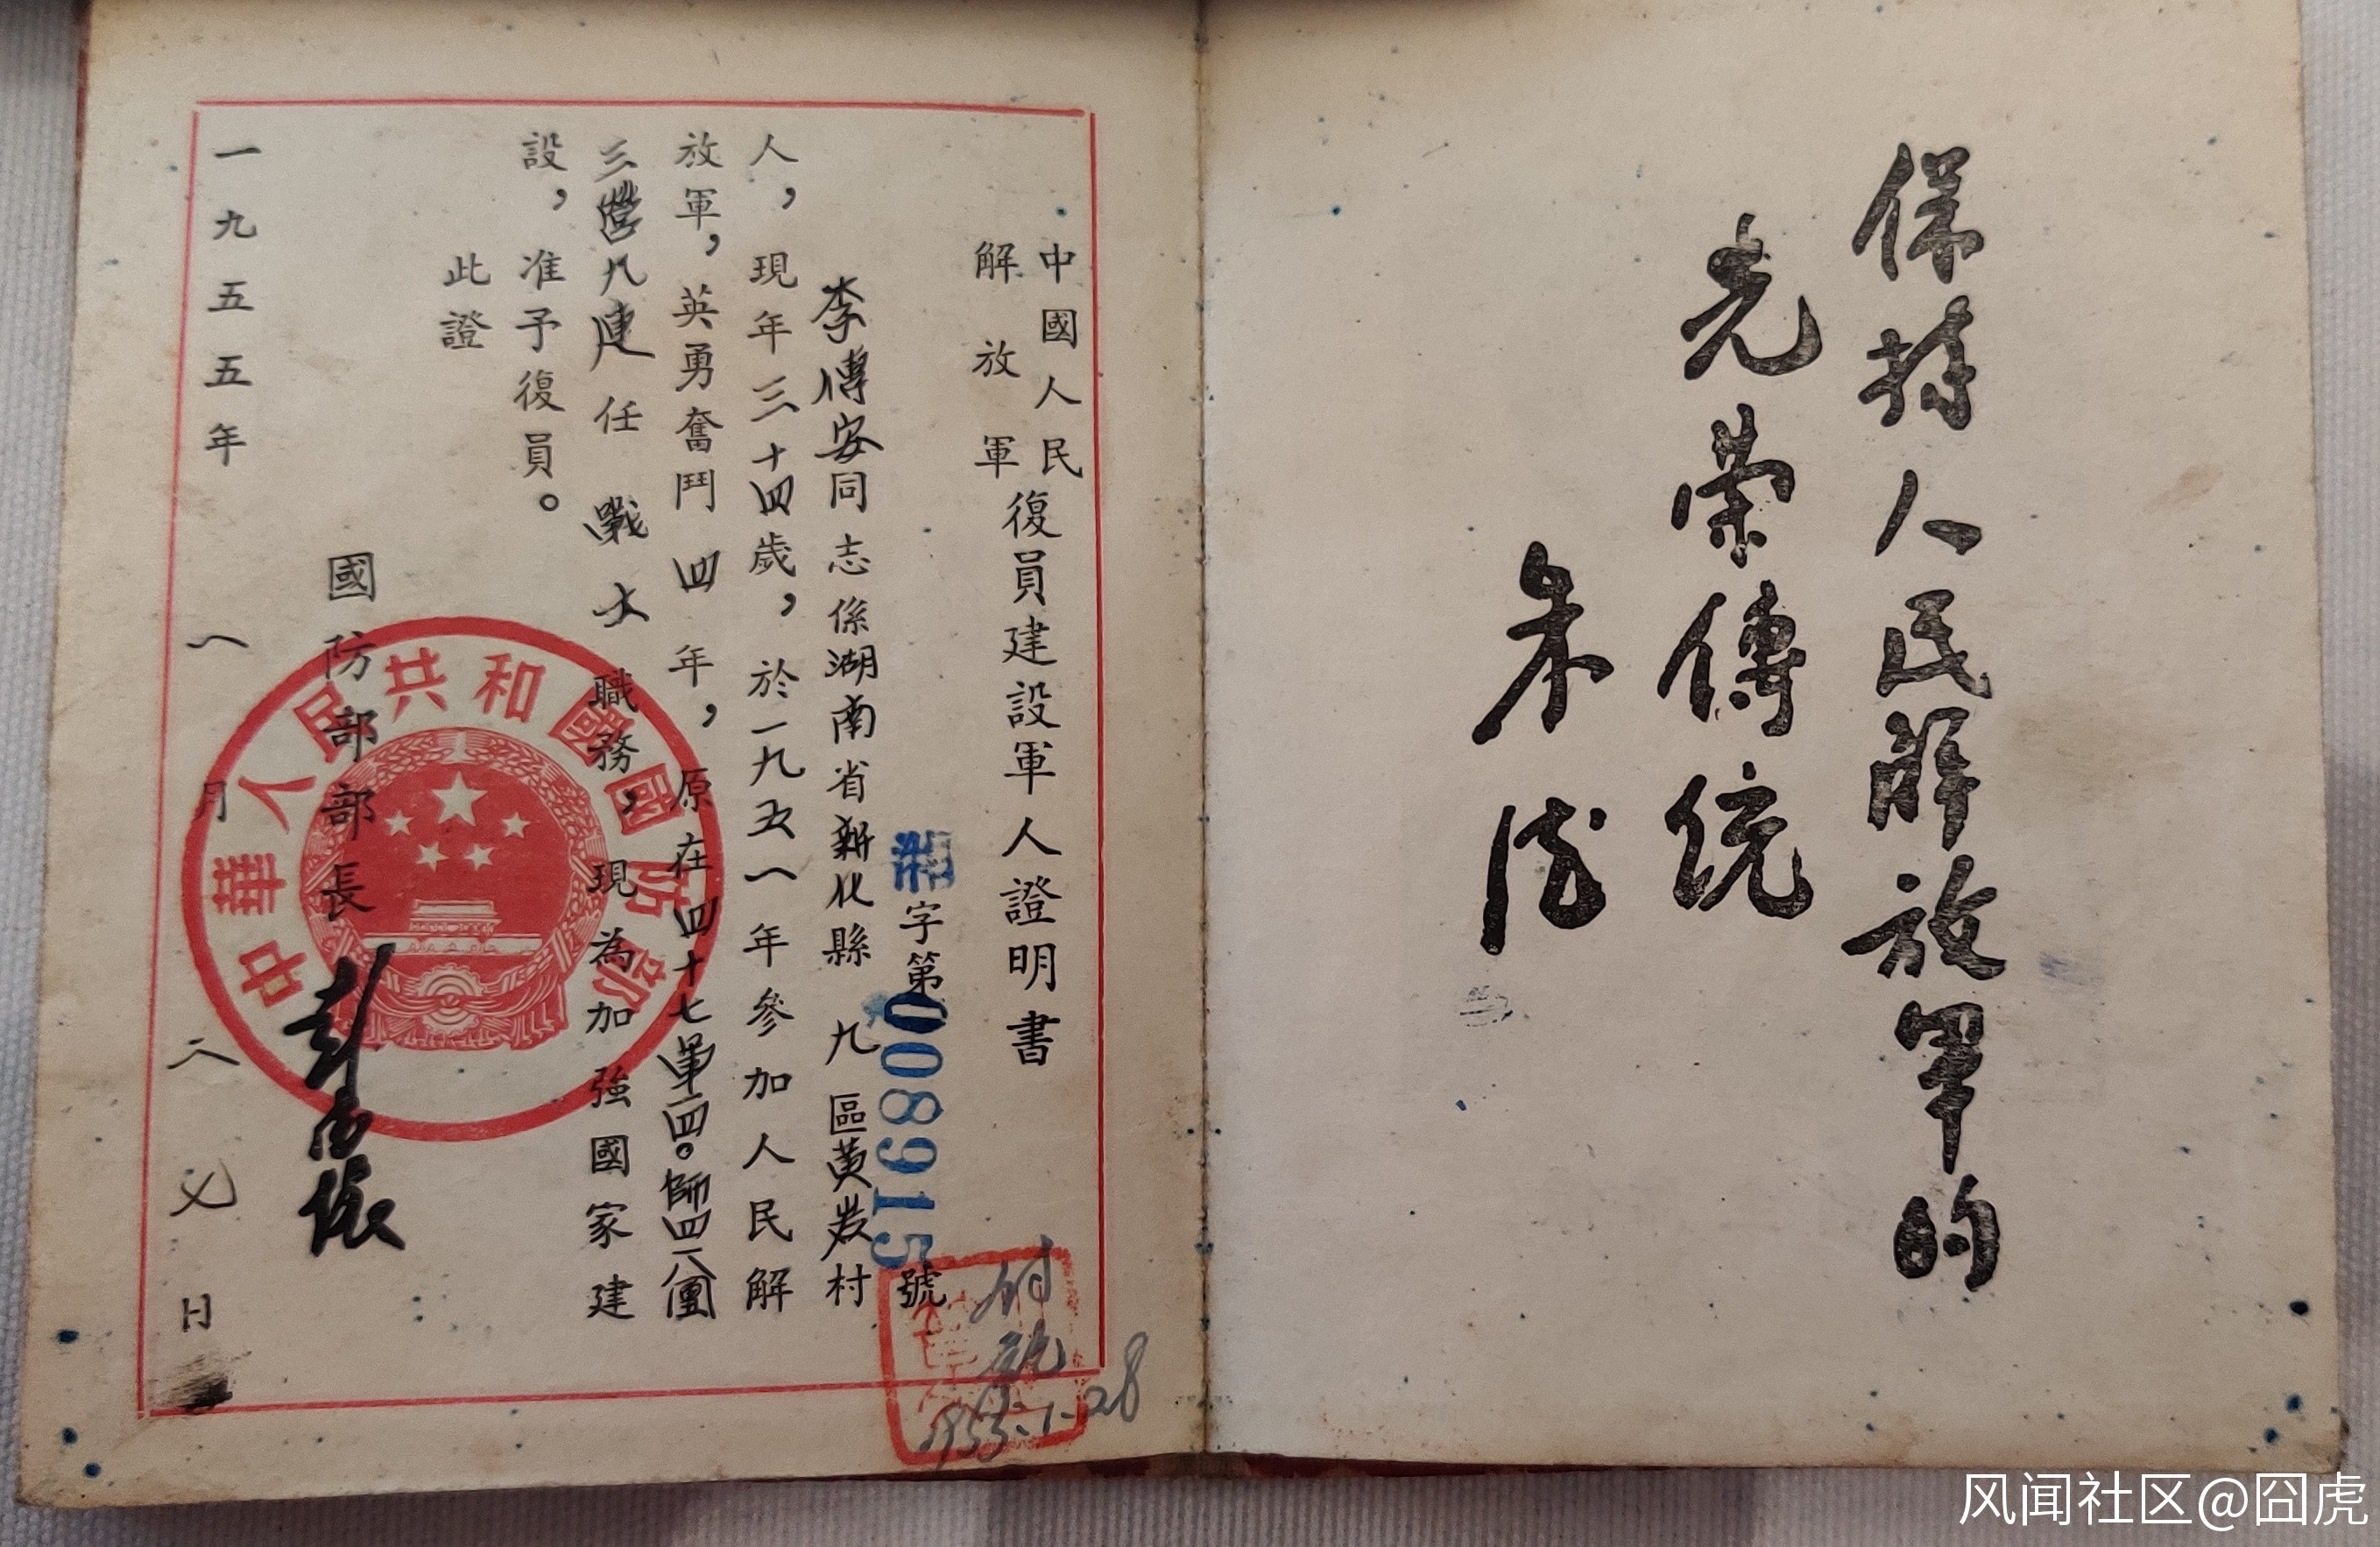 保持人民解放軍的
光荣傳统
朱德
中國人民
解放軍
復員建設軍人證明書
字第008915號
李傳安同志係湖南省新化縣九區黄発村
人，現年三十四歲，於一九五一年參加人民解
放軍，英勇奮鬥四年，原在四十七軍一四〇師四一八團
三营八連任戰士職務，現為加強國家建
設，准予復員。
此證
國防部部長 彭德懷
一九五五年一月二八日
中華人民共和國國防部
1955.1.28
风闻社区@囧虎